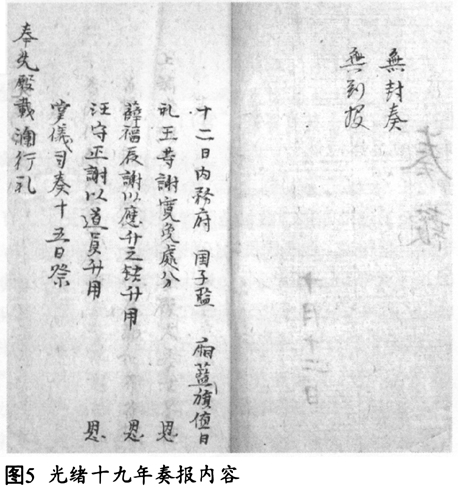 無封奏
無到报
奏報
十月十二日
十二日内務府 国子监 廂藍旗值日
礼王等謝寬免處分 恩
薛福辰謝以應升之缺升用 恩
汪守正謝以道員升用 恩
掌儀司奏十五日祭
奉先殿載行礼
图5 光绪十九年奏报内容